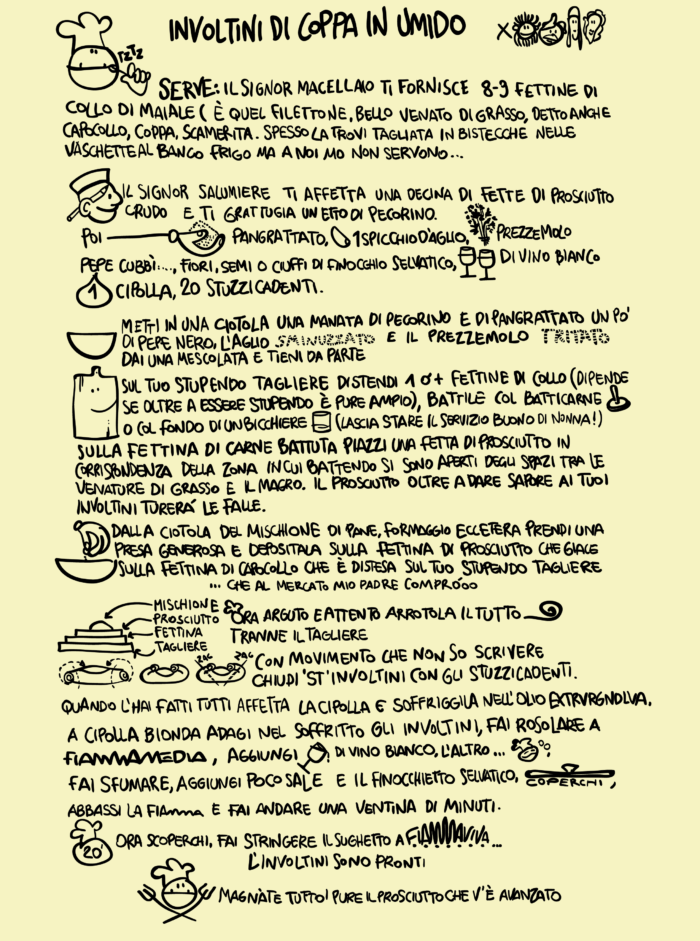 INVOLTINI DI COPPA IN UMIDO x
TZTZ
SERVE: IL SIGNOR MACELLAIO TI FORNISCE 8-9 FETTINE DI
COLLO DI MAIALE ( È QUEL FILETTONE, BELLO VENATO DI GRASSO, DETTO ANCHE
CAPOCOLLO, COPPA, SCAMERITA. SPESSO LA TROVI TAGLIATA IN BISTECCHE NELLE
VASCHETTE AL BANCO FRIGO MA A NOI MO NON SERVONO...
IL SIGNOR SALUMIERE TI AFFETTA UNA DECINA DI FETTE DI PROSCIUTTO
CRUDO E TI GRATTUGIA UN ETTO DI PECORINO.
POI PANGRATTATO, 1 SPICCHIO D'AGLIO, PREZZEMOLO
PEPE CUBBÌ..., FIORI, SEMI O CIUFFI DI FINOCCHIO SELVATICO, DI VINO BIANCO
1 CIPOLLA, 20 STUZZICADENTI.
METTI IN UNA CIOTOLA UNA MANATA DI PECORINO E DI PANGRATTATO UN PO'
DI PEPE NERO, L'AGLIO SMINUZZATO E IL PREZZEMOLO TRITATO
DAI UNA MESCOLATA E TIENI DA PARTE
SUL TUO STUPENDO TAGLIERE DISTENDI 1 O + FETTINE DI COLLO (DIPENDE
SE OLTRE A ESSERE STUPENDO È PURE AMPIO), BATTILE COL BATTICARNE
O COL FONDO DI UN BICCHIERE (LASCIA STARE IL SERVIZIO BUONO DI NONNA!)
SULLA FETTINA DI CARNE BATTUTA PIAZZI UNA FETTA DI PROSCIUTTO IN
CORRISPONDENZA DELLA ZONA IN CUI BATTENDO SI SONO APERTI DEGLI SPAZI TRA LE
VENATURE DI GRASSO E IL MAGRO. IL PROSCIUTTO OLTRE A DARE SAPORE AI TUOI
INVOLTINI TURERÀ LE FALLE.
DALLA CIOTOLA DEL MISCHIONE DI PANE, FORMAGGIO ECCETERA PRENDI UNA
PRESA GENEROSA E DEPOSITALA SULLA FETTINA DI PROSCIUTTO CHE GIACE
SULLA FETTINA DI CAPOCOLLO CHE È DISTESA SUL TUO STUPENDO TAGLIERE
... CHE AL MERCATO MIO PADRE COMPRÒÒO
MISCHIONE
PROSCIUTTO
FETTINA
TAGLIERE
ORA ARGUTO E ATTENTO ARROTOLA IL TUTTO
TRANNE IL TAGLIERE
ZAC ZAC
CON MOVIMENTO CHE NON SO SCRIVERE
CHIUDI 'ST'INVOLTINI CON GLI STUZZICADENTI.
QUANDO L'HAI FATTI TUTTI AFFETTA LA CIPOLLA E SOFFRIGGILA NELL'OLIO EXTRVRGNOLVA.
A CIPOLLA BIONDA ADAGI NEL SOFFRITTO GLI INVOLTINI, FAI ROSOLARE A
FIAMMAMEDIA, AGGIUNGI DI VINO BIANCO, L'ALTRO...
FAI SFUMARE, AGGIUNGI POCO SALE E IL FINOCCHIETTO SELVATICO, COPERCHI,
ABBASSI LA FIAMMA E FAI ANDARE UNA VENTINA DI MINUTI.
20' ORA SCOPERCHI, FAI STRINGERE IL SUGHETTO A FIAMMAVIVA...
L'INVOLTINI SONO PRONTI
MAGNÀTE TUTTO! PURE IL PROSCIUTTO CHE V'È AVANZATO